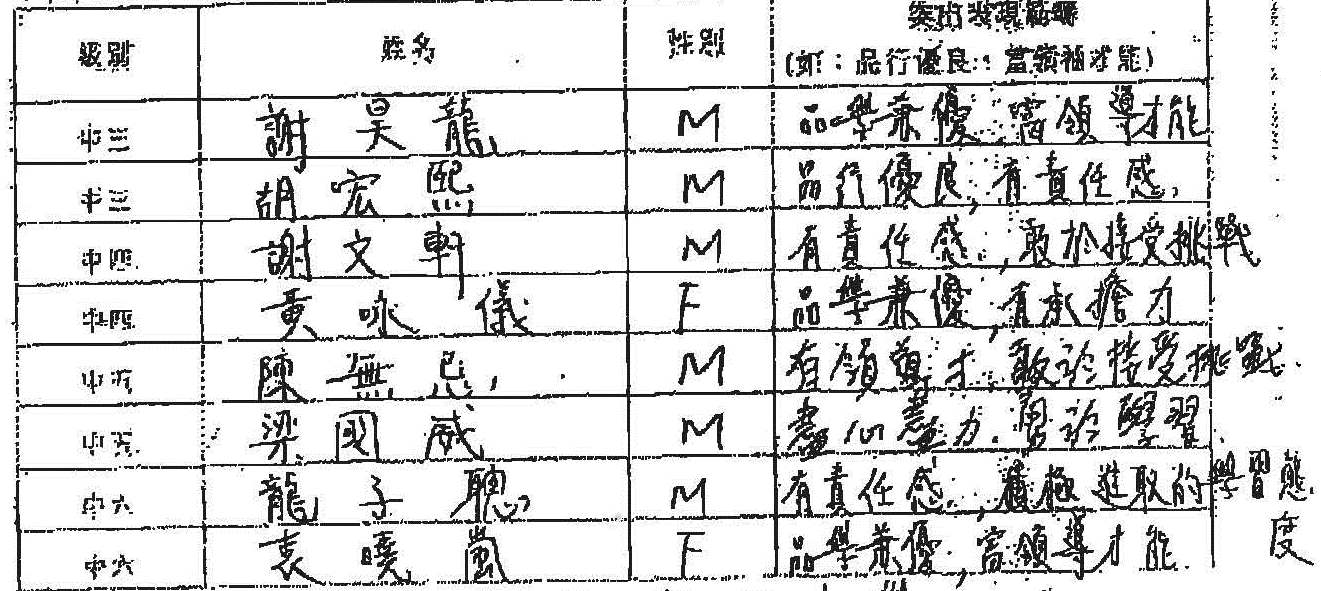 級別 姓名 性別 突出表現範疇
(如：品行優良、富領袖才能)
中三 謝昊龍 M 品學兼優,富領導才能
中三 胡宏熙 M 品行優良,有責任感
中四 謝文軒 M 有責任感,敢於接受挑戰
中四 黃咏儀 F 品學兼優,有承擔力
中五 陳無忌 M 有領導才,敢於接受挑戰
中五 梁國威 M 盡心盡力,勇於學習
中六 龍子聰 M 有責任感,積極進取的學習態度
中六 袁曉 F 品學兼優,富領導才能